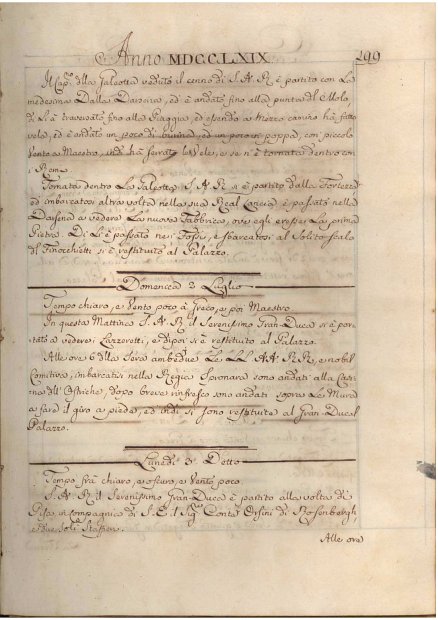 Anno MDCCLXIX. 199
Il Cap.º della Galeotta veduto il cenno di S. A. R. è partito con la
medesima dalla Darsena, ed è andato fino alla punta del Molo,
di li à traversato fino alla Piaggia, ed essendo a mezzo camino hà fatto
vela, ed è andato un poco di buina, ed un poco in poppa, con piccolo
Vento a Maestro, indi hà serrato le Vele, e se n'è tornata dentro con
i Remi.
Tornata dentro la Galeotta S. A. R. si è partito dalla Fortezza
ed imbarcatosi altra volta nella sua Real Lancia è passato nella
Darsena a vedere la nuova Fabbrica, ove egli eresse la prima
Pietra. Di lì è passato nei Fossi, e sbarcatosi al Solito scalo
di Finocchietti si è restituito al Palazzo.
Domenica 2 Luglio
Tempo chiaro, e Vento poco à Greco, e poi Maestro.
In questa Mattina S. A. R. il Serenissimo Gran-Duca si è por-
tato a vedere i Lazzeretti, e di poi si è restituito al Palazzo.
Alle ore 6 della Sera ambedue le LL. AA. RR. e nobil
Comitiva, imbarcatisi nella Regia Speronara sono andati alla Catti-
na dell' Ostriche, dopo breve rinfresco sono andati sopra le Mura
a fare il giro a piede, ed indi si sono restituite al Gran-Ducal
Palazzo.
Lunedì 3.º Detto
Tempo frà chiaro, e oscuro, e Vento poco.
S. A. R. il Serenissimo Gran-Duca è partito alla volta di
Pisa in compagnia di S. E. il Sig.º Conte Orsini di Rosenbergh,
e due soli Staffieri.
Alle ore